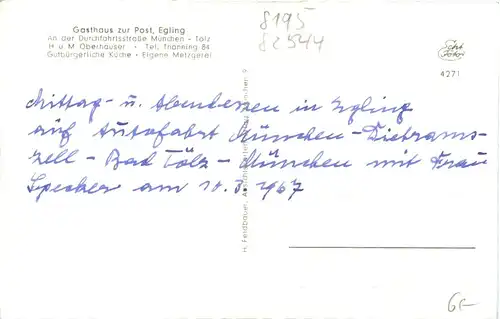 Gasthaus zur Post, Egling
An der Durchfahrtsstraße München - Tölz
H u M Oberhauser - Tel. Thanning 84
Gutbürgerliche Küche - Eigene Metzgerei
8195
82544
Echt Foto
4271
Mittag- u. Abendessen in Egling
auf Autofahrt München-Dietrams-
zell - Bad Tölz - München mit Frau
am 10.5.1967
H. Feldbauer, München 9
6-